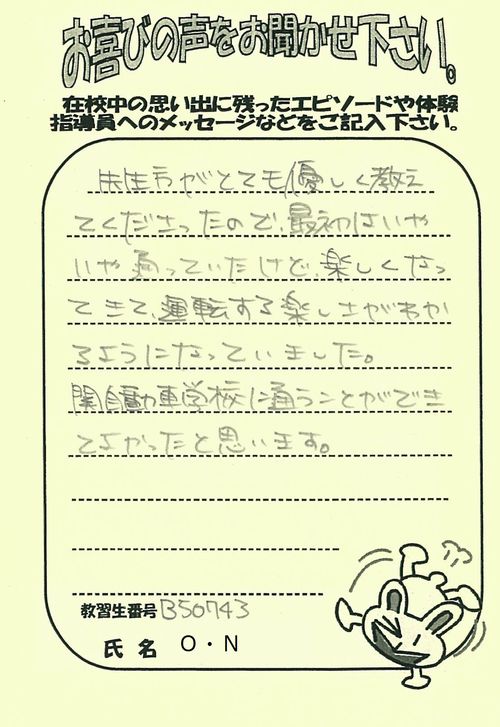 お喜びの声をお聞かせ下さい。
在校中の思い出に残ったエピソードや体験
指導員へのメッセージなどをご記入下さい。
先生方がとても優しく教え
てくださったので、最初はいや
いや通っていたけど、楽しくなっ
てきて、運転する楽しさがわか
るようになっていました。
関自動車学校に通うことができ
てよかったと思います。
教習生番号 B50743
氏名 O・N